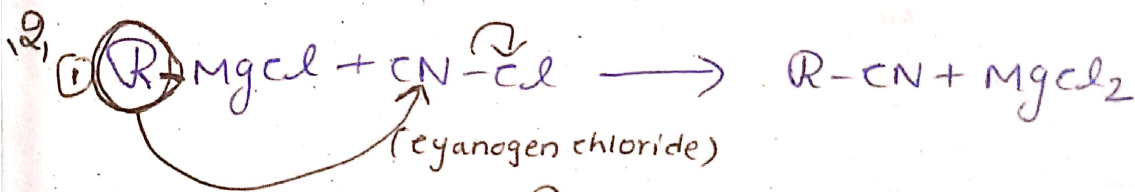 ,2,
① R-MgCl + CN-Cl ⟶ R-CN + MgCl2
(cyanogen chloride)